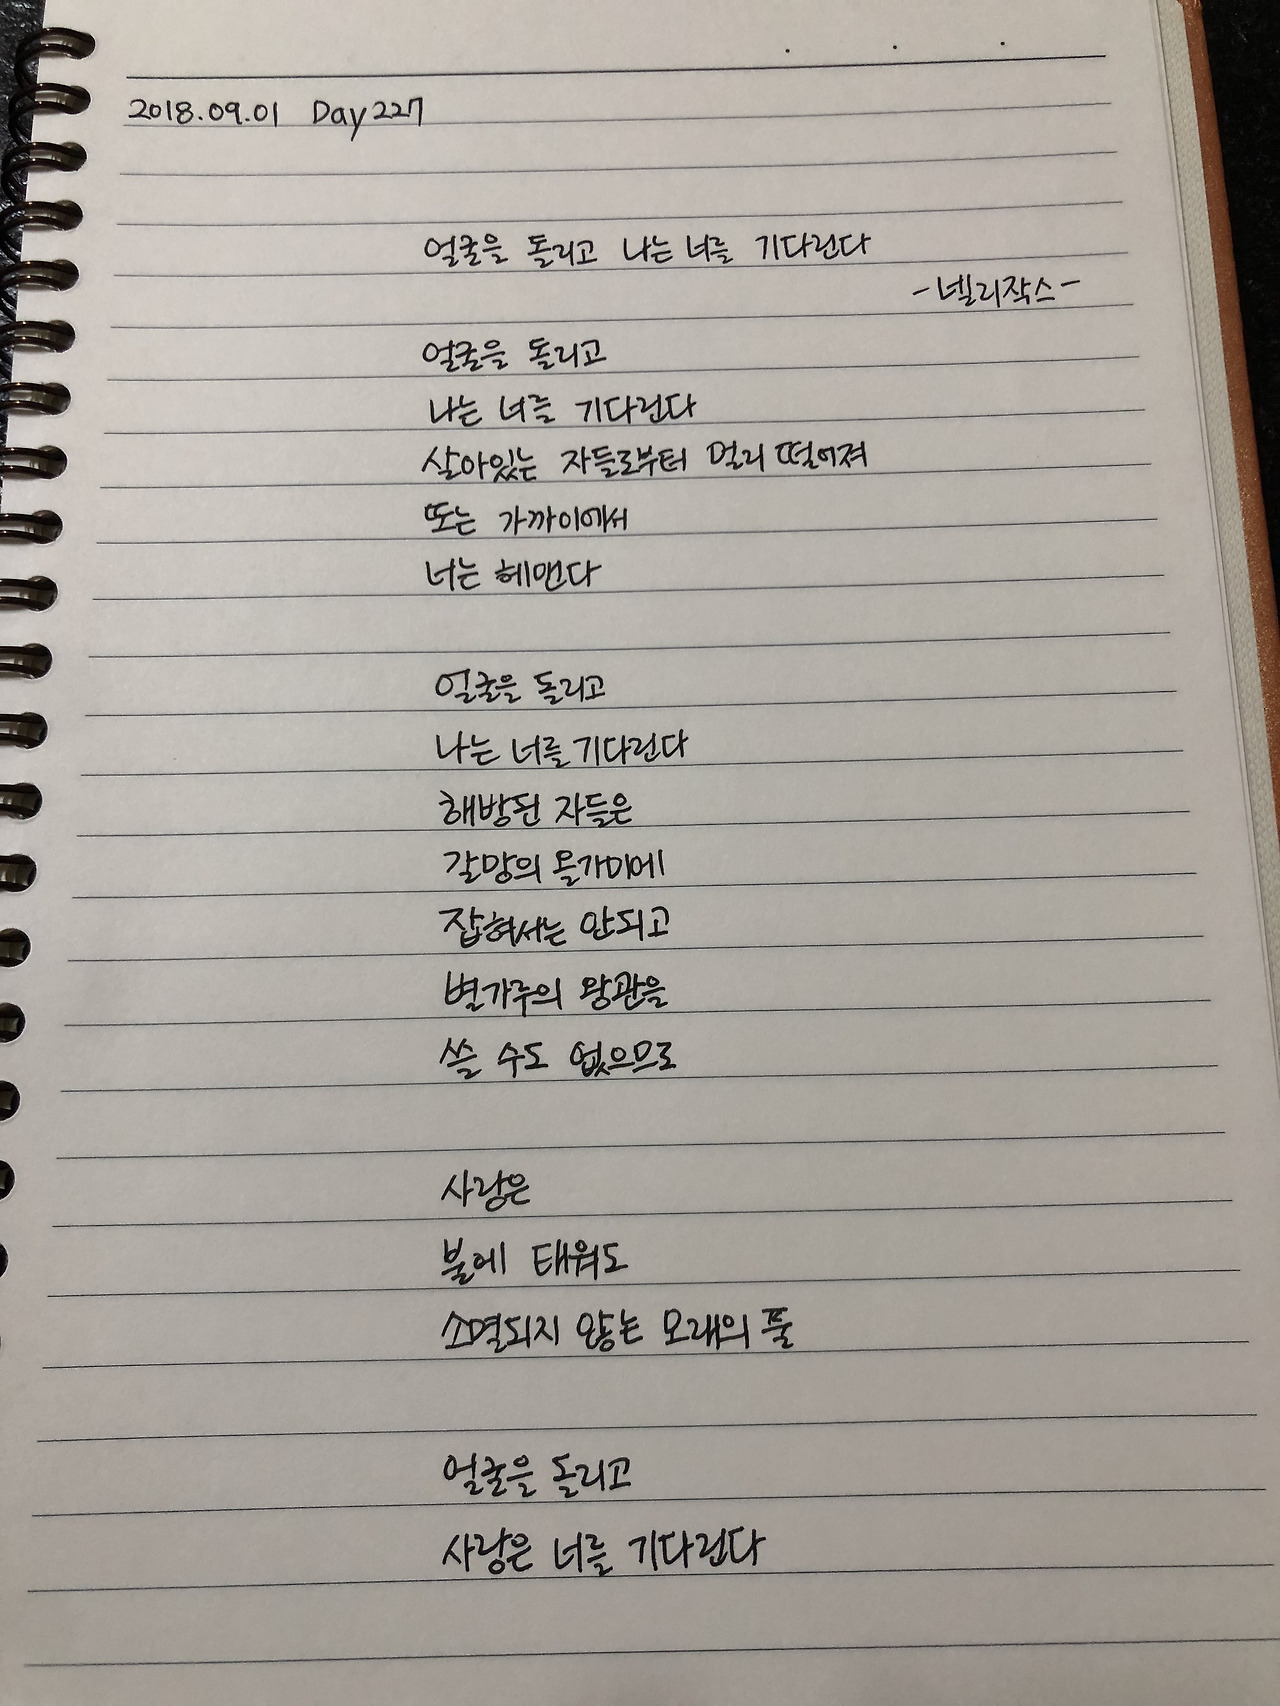 2018.09.01 Day 227
얼굴을 돌리고 나는 너를 기다린다
-넬리작스-
얼굴을 돌리고
나는 너를 기다린다
살아있는 자들로부터 멀리 떨어져
또는 가까이에서
너는 헤맨다
얼굴을 돌리고
나는 너를 기다린다
해방된 자들은
갈망의 올가미에
잡혀서는 안되고
별가루의 왕관을
쓸 수도 없으므로
사랑은
불에 태워도
소멸되지 않는 모래의 풀
얼굴을 돌리고
사랑은 너를 기다린다